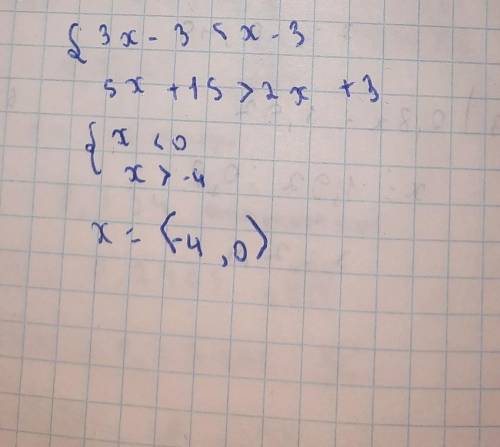 { 3x - 3 < x - 3
5x + 15 > 2x + 3
{ x < 0
x > -4
x = (-4, 0)